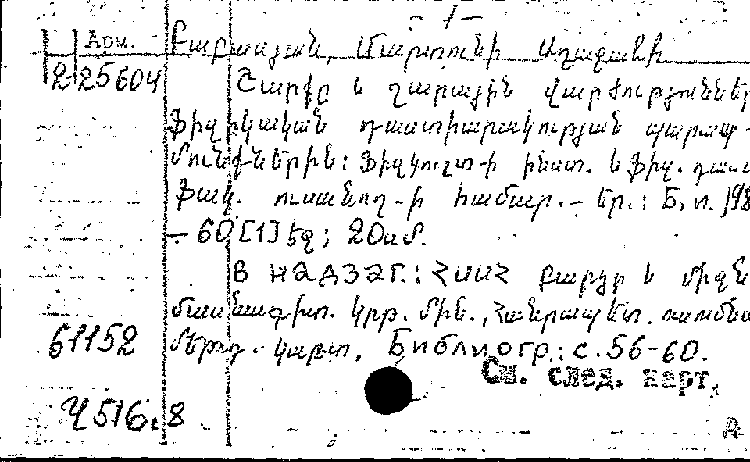 - 1 -
Арм. Մարտունի Աղաջանի
2 25604 Շարքը և շարային վարժությունները
ֆիզիկական դաստիարակության պարապ-
մունքներին: Ֆիզկուլտ-ի ինստ. և ֆիզ. դաստ.
ֆակ. ուսանող-ի համար. – Եր.: Б. и., 198
– 60 [1] էջ; 20 սմ.
В надзаг.: ՀՍՍՀ բարձր. և միջն.
մասնագիտ. կրթ. մին., Հանրապետ. ուսումնա
61152 մեթոդ. կաբտ. Библиогр.: с. 56-60.
См. след. карт.
Ч 516.8
А